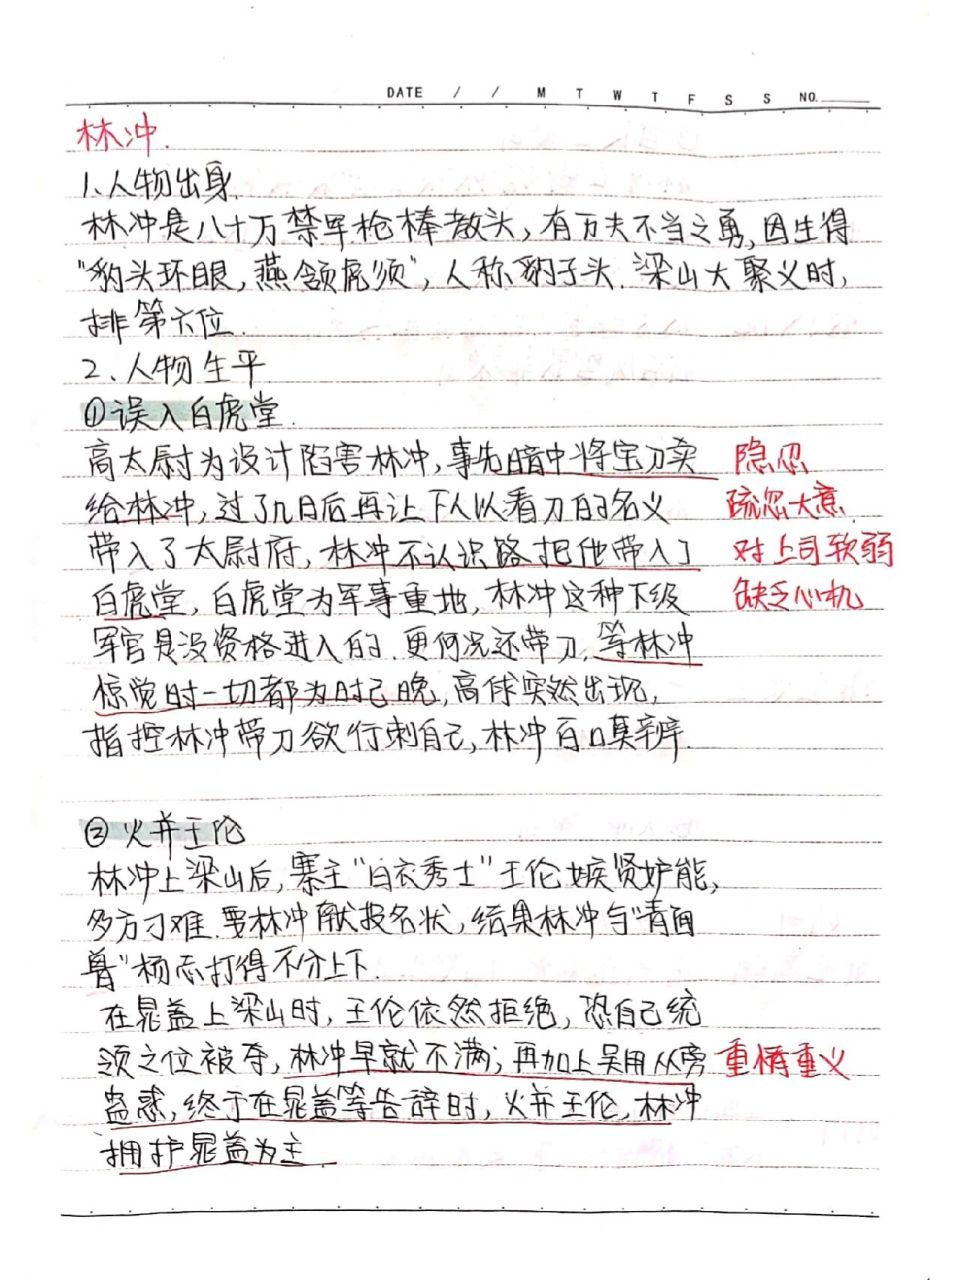 DATE / / M T W T F S S NO.
林冲.
1、人物出身.
林冲是八十万禁军枪棒教头,有万夫不当之勇,因生得
"豹头环眼,燕颔虎须",人称豹子头.梁山大聚义时,
排第六位.
2、人物生平.
①误入白虎堂.
高太尉为设计陷害林冲,事先暗中将宝刀卖 隐忍
给林冲,过了几日后再让下人以看刀的名义 疏忽大意
带入了太尉府,林冲不认识路把他带入了 对上司软弱
白虎堂,白虎堂为军事重地,林冲这种下级 缺乏心机
军官是没资格进入的.更何况还带刀,等林冲
惊觉时一切都为时已晚,高俅突然出现,
指控林冲带刀欲行刺自己,林冲百口莫辨.
②火并王伦
林冲上梁山后,寨主"白衣秀士"王伦嫉贤妒能,
多方刁难.要林冲献投名状,结果林冲与"青面
兽"杨志打得不分上下.
在晁盖上梁山时,王伦依然拒绝,恐自己统
领之位被夺,林冲早就不满;再加上吴用从旁 重情重义
蛊惑,终于在晁盖等告辞时,火并王伦,林冲
拥护晁盖为主.